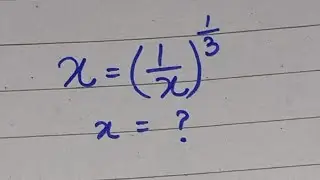 x = (1/x)^(1/3)
x = ?